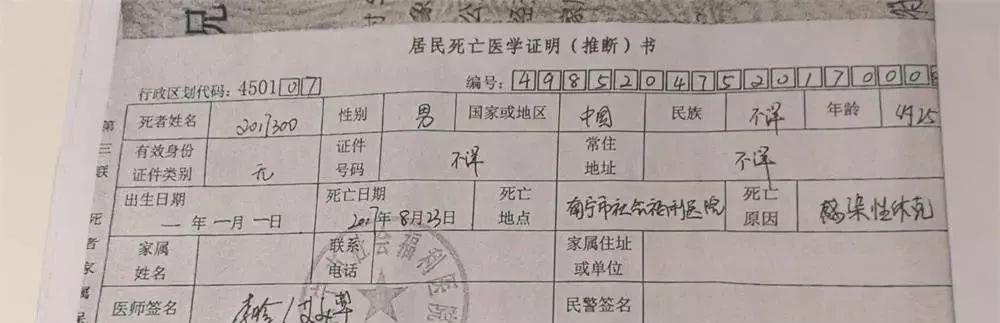 居民死亡医学证明(推断)书
行政区划代码: 450107 编号: 4985204752017000
第三联 死者家属
死者姓名 2017300 性别 男 国家或地区 中国 民族 不详 年龄 约25
有效身份证件类别 无 证件号码 不详 常住地址 不详
出生日期 — 年 — 月 — 日 死亡日期 2017年8月23日 死亡地点 南宁市社会福利医院 死亡原因 感染性休克
家属姓名 联系电话 家属住址或单位
医师签名 民警签名
社会福利医院